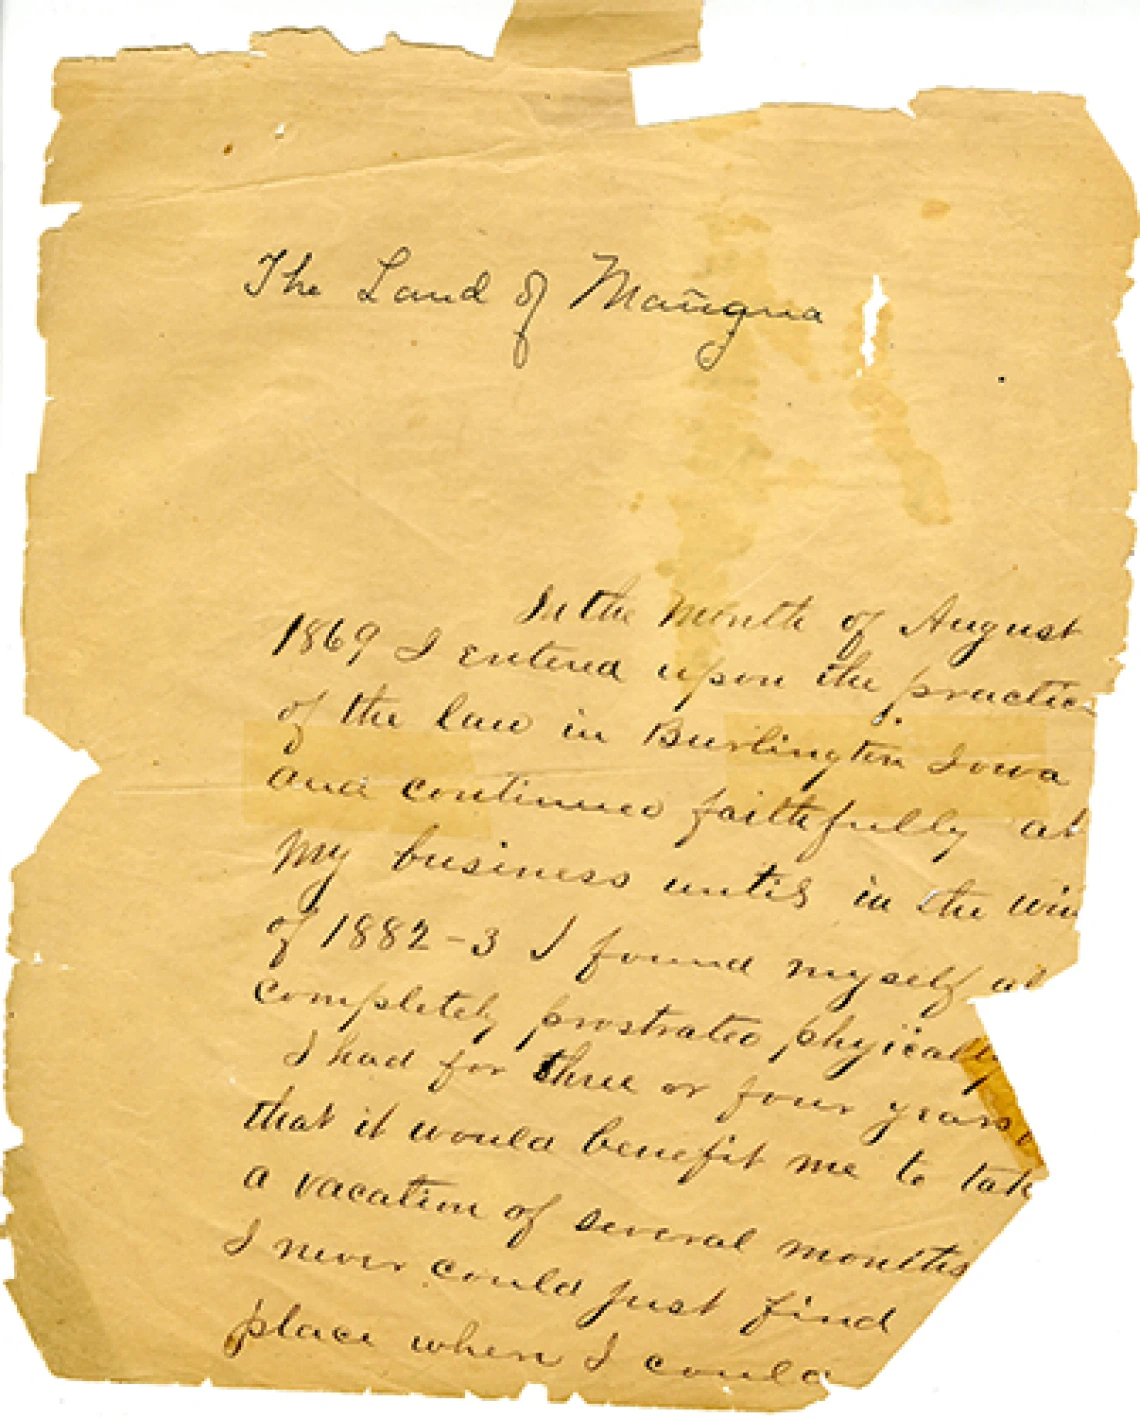 The Land of Mañgna
In the Month of August
1869 I entered upon the practice
of the law in Burlington Iowa
and continued faithfully at
My business until in the win
of 1882-3 I found myself al
completely prostrated phyically
I had for three or four years
that it would benefit me to tak
a vacation of several months
I never could just find
place when I could